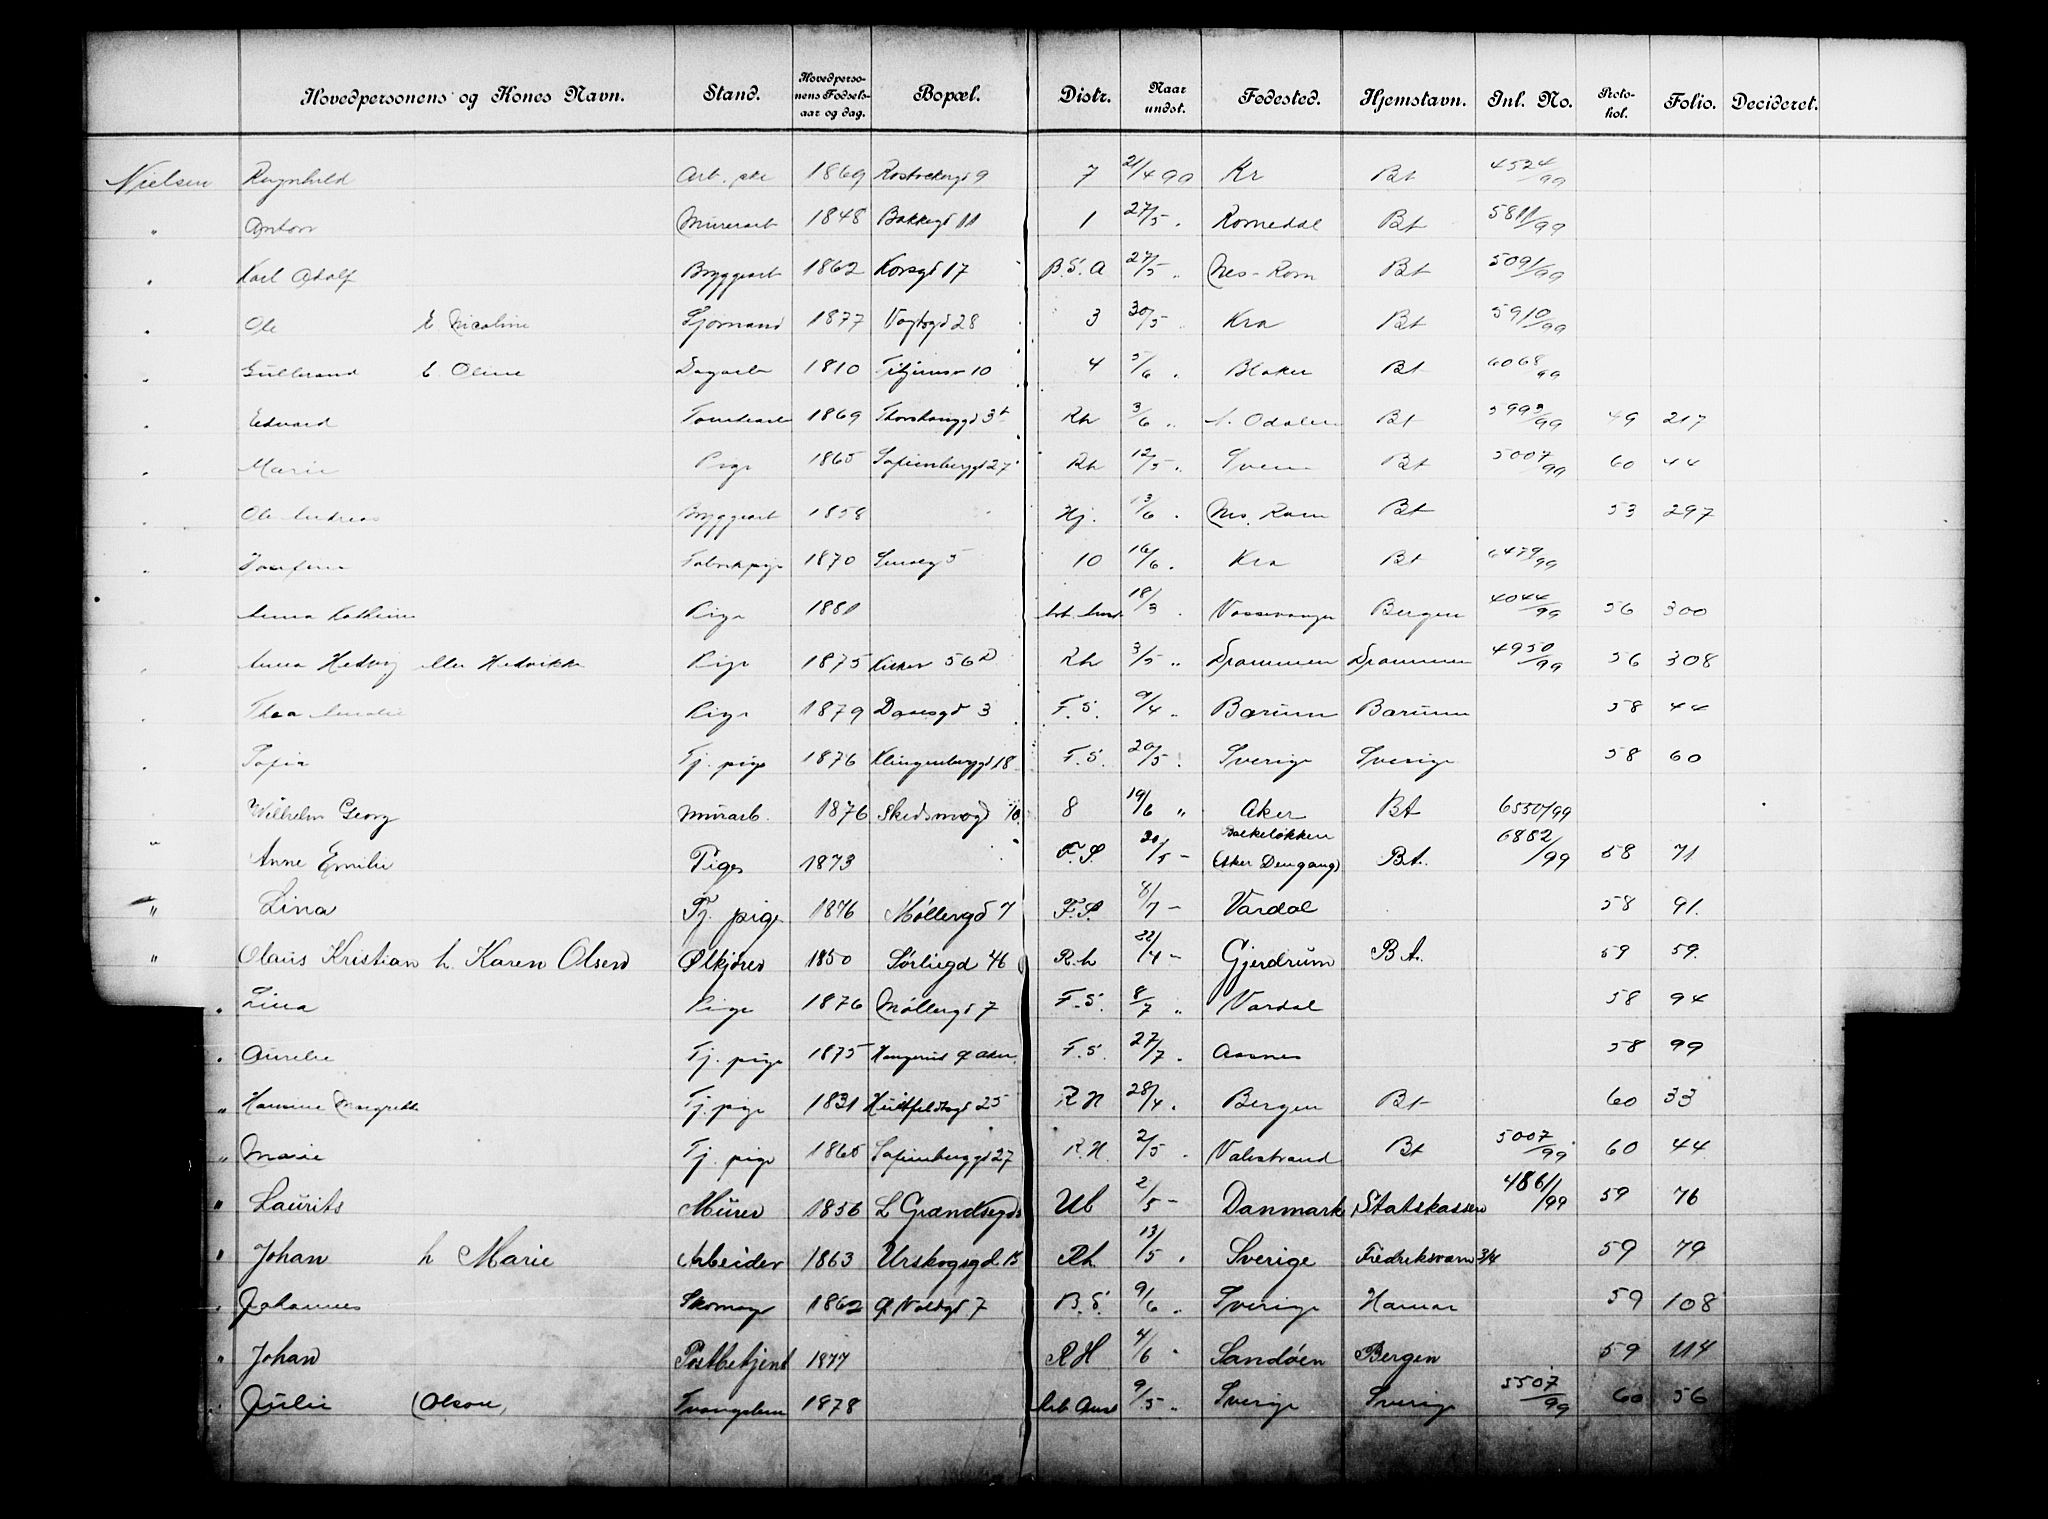 Hovedpersonens og Kones Navn. Stand. Hovedpersonens Fødselsaar og dag. Bopæl. Distr. Naar undst. Fødested. Hjemstavn. Inl. No. Protokol. Folio. Decideret.
Nielsen Ragnhild Arb. pke 1869 Rostockergd 9 7 21/4 99 Kr Bt 4524/99
" Anton Murerarb 1848 Bakkegd 11 1 27/5 " Romedal Bt 5811/99
" Karl Adolf Bryggearb 1862 Korsgd 17 B.S. A 27/5 " Nes-Rom Bt 5091/99
" Ole E. Nicoline Sjømand 1877 Vogtsgd 28 3 30/5 " Kra Bt 5910/99
" Gulbrand E. Oline Dagarb 1810 10 4 5/6 " Blaker Bt 6068/99
" Edvard Tomtearb 1869 3 Rh 3/6 " Odalen Bt 5993/99 49 217
" Marie Pige 1865 Sofienberggd 27 Rh 12/5 " Bt 5007/99 60 44
" Ole Andreas Bryggearb 1858 Hj. 13/6 " Nes. Rom Bt 53 297
" Josefine Fabrikpige 1870 5 10 16/6 " Kra Bt 6479/99
Anna Kathrine Pige 1881 Arb. Anst 18/3 " Vossevangen Bergen 4044/99 56 300
" Anna Hedvig eller Hedvikke Pige 1875 Kirkev 56 D Rh 3/5 " Drammen Drammen 4950/99 56 308
" Thea Amalie Pige 1879 Daasgd 3 F.S. 9/4 " Bærum Bærum 58 44
" Sofie Tj. pige 1876 Klingenberggd 18 F.S. 20/5 " Sverige Sverige 58 60
" Wilhelm Georg Murarb. 1876 Skedsmogd 10 8 19/6 " Aker Bt 6550/99
" Anne Emilie Pige 1873 F.S. 20/5 - Bakkeløkken (Aker Dengang) Bt. 6882/99 58 71
" Lina Tj. pige 1876 Møllergd 7 F.S. 8/7 - Vardal 58 91.
" Olaus Kristian h. Karen Olsen Ølkjører 1850 Sørliegd 46 R.h 22/4 - Gjerdrum Bt. 59 59.
" Lina Pige 1876 Møllergd 7 F.S. 8/7 " Vardal 58 94
" Aurelie Tj. pige 1875 Haugerud Ø Aker. F.S. 27/7 " Aasnes 58 99
" Hansine Margrethe Tj. pige 1831 Huitfeldtsgd 25 R H 28/4 " Bergen Bt 60 33
" Marie Tj. pige 1865 Sofienberggd 27 R.H. 2/5 " Valestrand Bt 5007/99 60 44
" Laurits Murer 1856 L Grændsegd Ub 2/5 - Danmark Statskassen 4861/99 59 76
" Johan h Marie Arbeider 1863 Urskogsgd 15 Rh 13/5 " Sverige Fredriksværn 3/4 59 79
" Johannes Skomager 1862 Ø Voldgd 7 B.S. 9/6 " Sverige Hamar 59 108
" Johan Postbetjent 1877 R H 4/6 " Sandøen Bergen 59 114
" Julie (Olsen) Tvangslem 1878 Arb Anst 9/5 " Sverige Sverige 5507/99 60 56